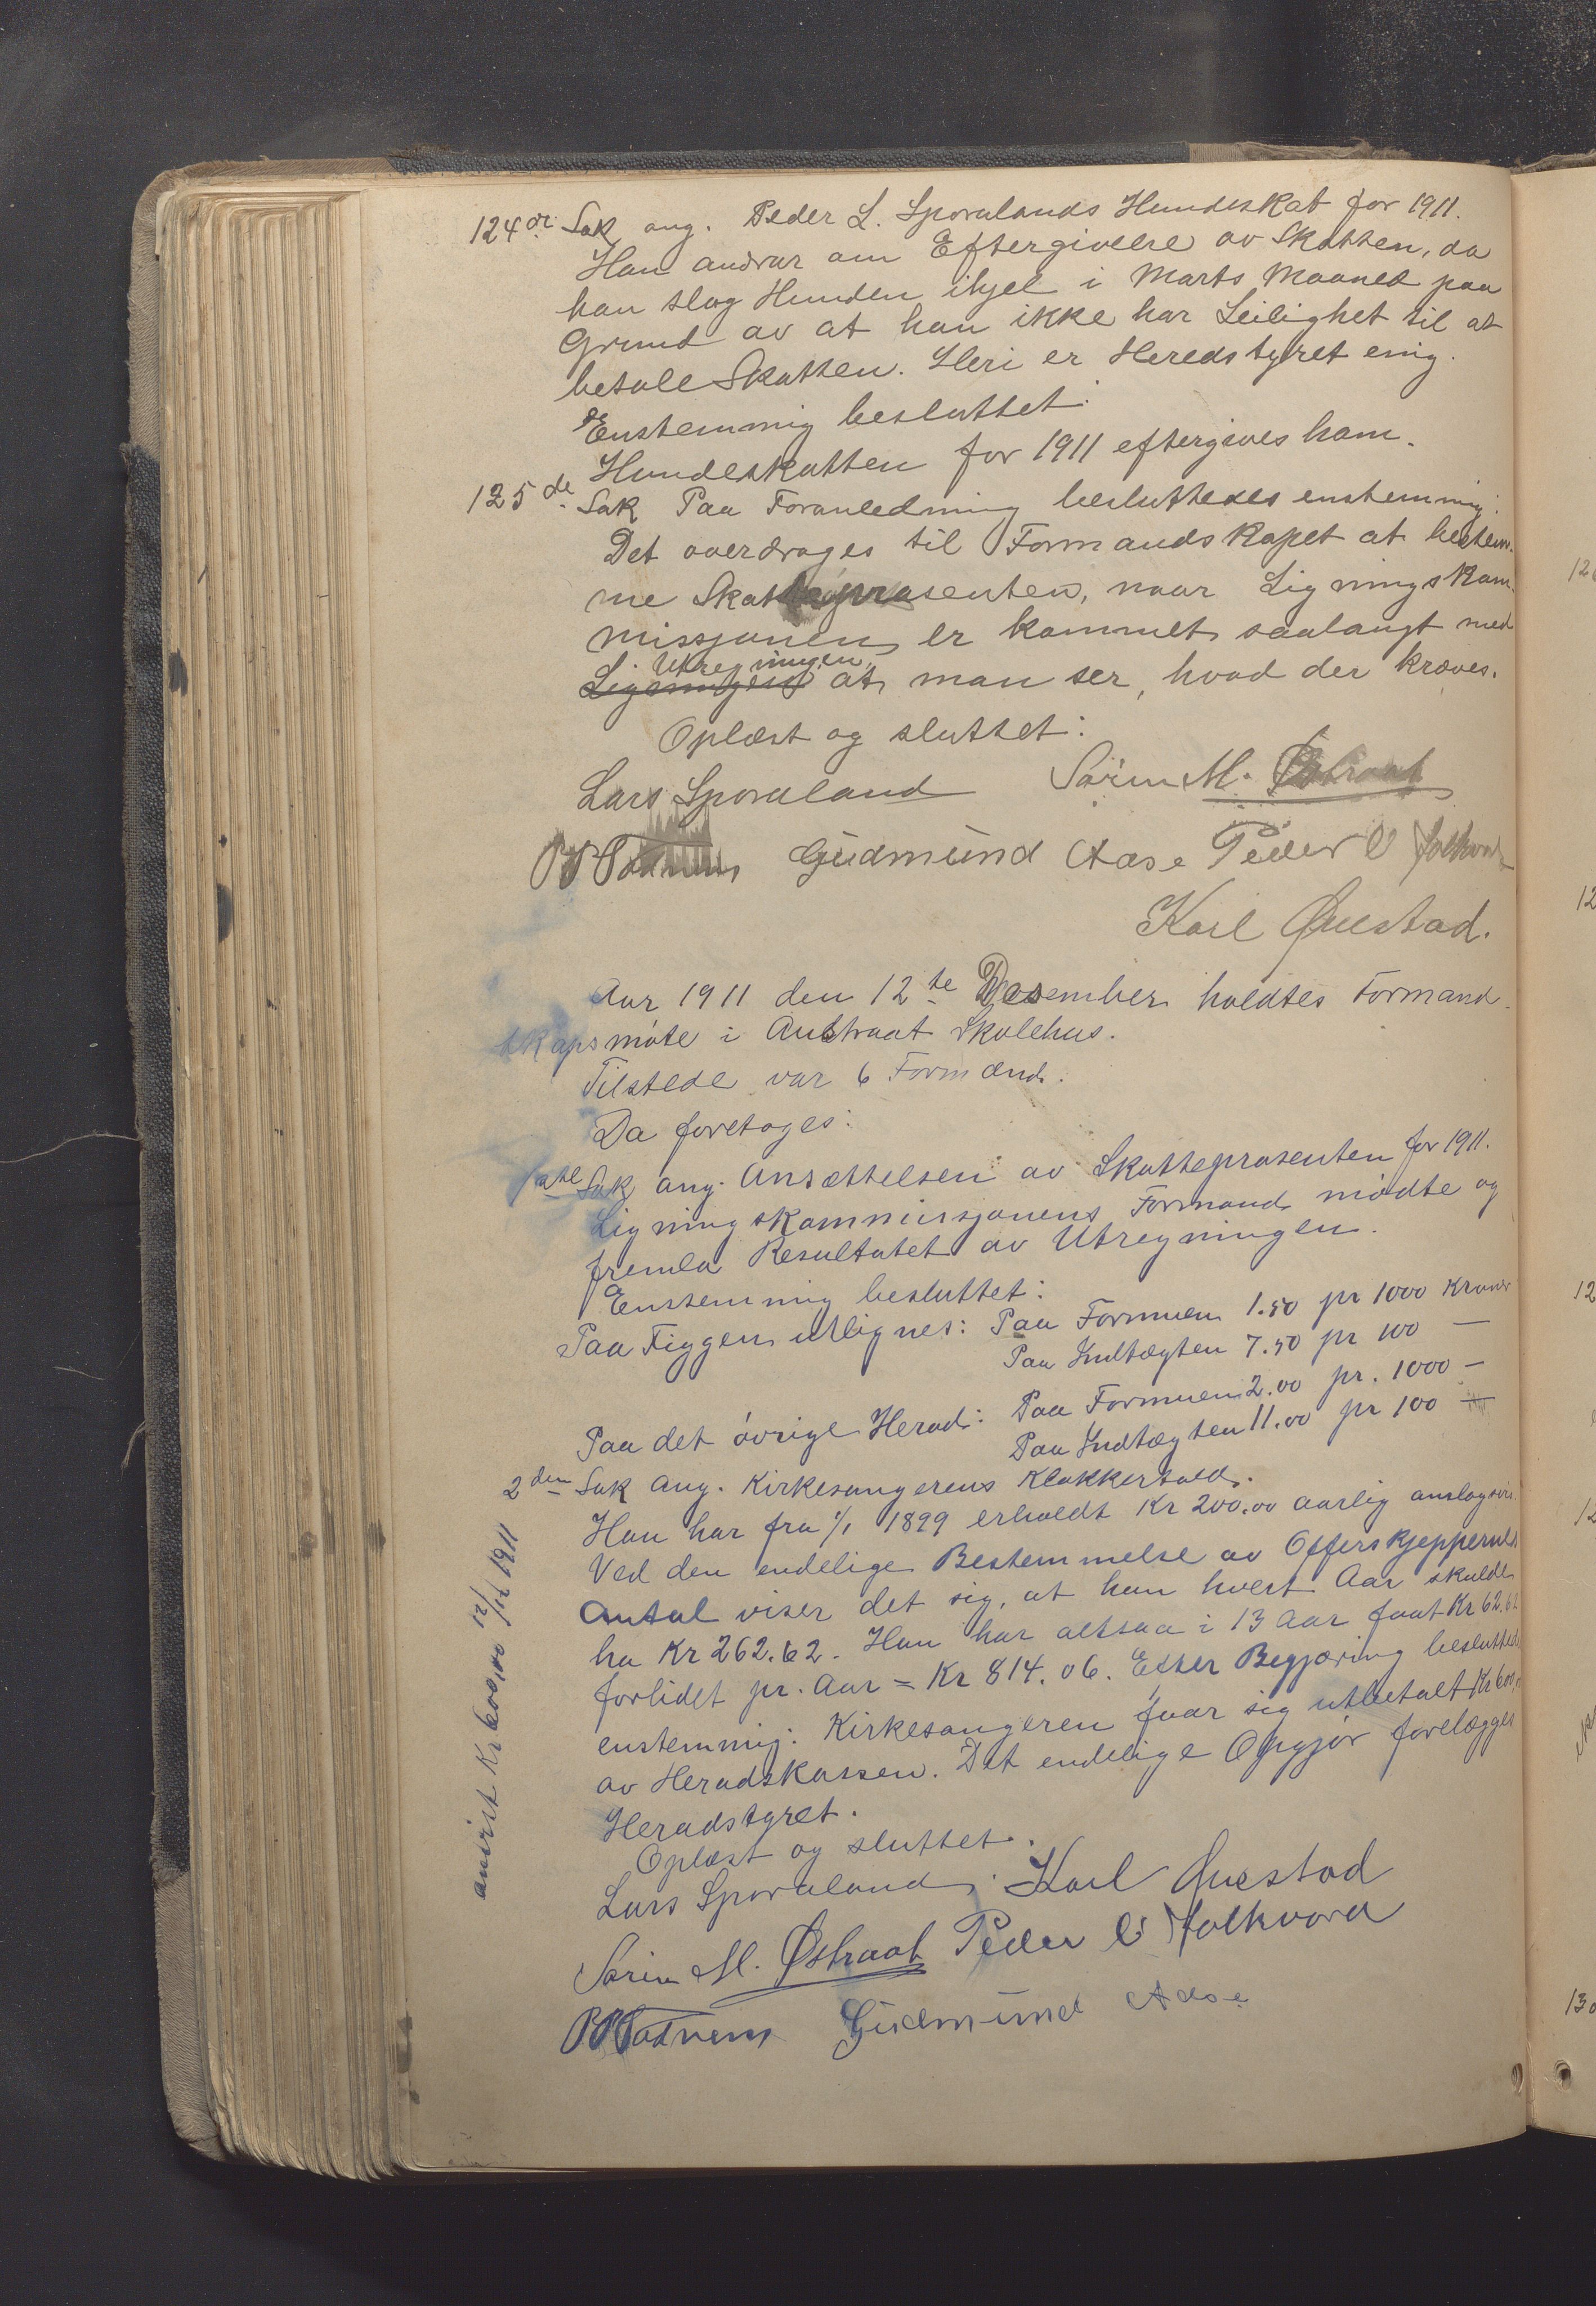 124de Sak ang. Peder L. Sporalands Hundeskat for 1911.
Han andrar om Eftergivelse av Skatten, da
han slog Hunden ihjel i Marts Maaned paa
Grund av at han ikke har Leilighet til at
betale Skatten. Heri er Heredstyret enig.
Enstemmig besluttet:
Hundeskatten for 1911 eftergives ham.
125de Sak Paa Foranledning besluttedes enstemmig:
Det overdrages til Formandskapet at bestem-
me Skatteprosenten, naar Ligningskom-
missjonen er kommet saalangt med
Utregningen,
Ligningen at man ser, hvad der kræves.
Oplæst og sluttet:
Lars Sporaland Sørin M. Østraat
Gudmund Aase Peder O Folkvord
Karl Øvestad.
Aar 1911 den 12te Desember holdtes Formand-
skapsmøte i Austraat Skolehus.
Tilstede var 6 Formænd.
Da foretoges:
1ste Sak ang. Ansættelsen av Skatteprosenten for 1911.
Ligningskommissjonens Formand mødte og
fremla Resultatet av Utregningen.
Enstemmig besluttet:
Paa Figgen utlignes: Paa Formuen 1.50 pr 1000 Kroner
Paa Indtægten 7.50 pr 100 —
Paa det øvrige Herad: Paa Formuen 2.00 pr. 1000 —
Paa Indtægten 11.00 pr 100 —
2den Sak ang. Kirkesangerens Klokkertold.
Han har fra 1/1 1899 erholdt Kr 200.00 aarlig anslagsvis.
Ved den endelige Bestemmelse av Offerskjeppernes
Antal viser det sig, at han hvert Aar skulde
ha Kr 262.62. Han har altsaa i 13 Aar faat Kr 62.62
forlidet pr. Aar = Kr 814.06. Efter Begjæring besluttedes
enstemmig: Kirkesangeren faar sig utbetalt Kr 600,00
av Heradskassen. Det endelige Opgjør forelægges
Heradstyret.
Oplæst og sluttet.
Lars Sporaland. Karl Øvestad
Sørin M. Østraat Peder O Folkvord
Gudmund Aase
anvist Kr 600,00 12/12 1911